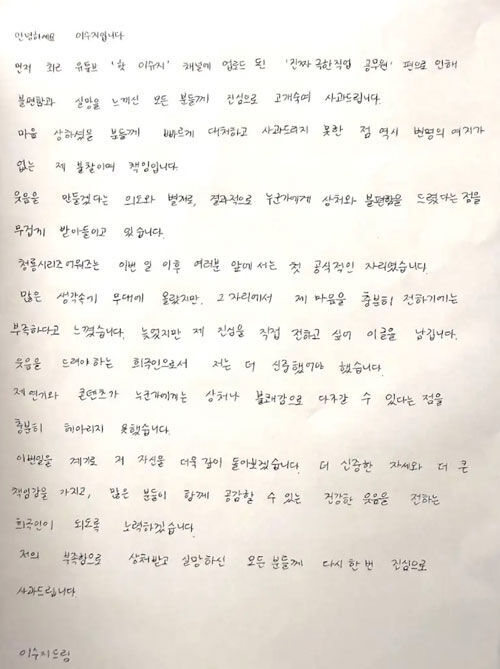 안녕하세요 이수지입니다
먼저 최근 유튜브 '핫 이슈지' 채널에 업로드 된 '진짜 극한직업 공무원' 편으로 인해
불편함과 실망을 느끼신 모든 분들께 진심으로 고개숙여 사과드립니다.
마음 상하셨을 분들께 빠르게 대처하고 사과드리지 못한 점 역시 변명의 여지가
없는 제 불찰이며 책임입니다.
웃음을 만들겠다는 의도와 별개로, 결과적으로 누군가에게 상처와 불편함을 드렸다는 점을
무겁게 받아들이고 있습니다.
청룡시리즈어워즈는 이번 일 이후 여러분 앞에 서는 첫 공식적인 자리였습니다.
많은 생각속에 무대에 올랐지만, 그 자리에서 제 마음을 충분히 전하기에는
부족하다고 느꼈습니다. 늦었지만 제 진심을 직접 전하고 싶어 이글을 남깁니다.
웃음을 드려야 하는 희극인으로서 저는 더 신중했어야 했습니다.
제 연기와 콘텐츠가 누군가에게는 상처나 불쾌감으로 다가갈 수 있다는 점을
충분히 헤아리지 못했습니다.
이번일을 계기로 저 자신을 더욱 깊이 돌아보겠습니다. 더 신중한 자세와 더 큰
책임감을 가지고, 많은 분들이 함께 공감할 수 있는 건강한 웃음을 전하는
희극인이 되도록 노력하겠습니다.
저의 부족함으로 상처받고 실망하신 모든 분들께 다시 한 번 진심으로
사과드립니다.
이수지드림